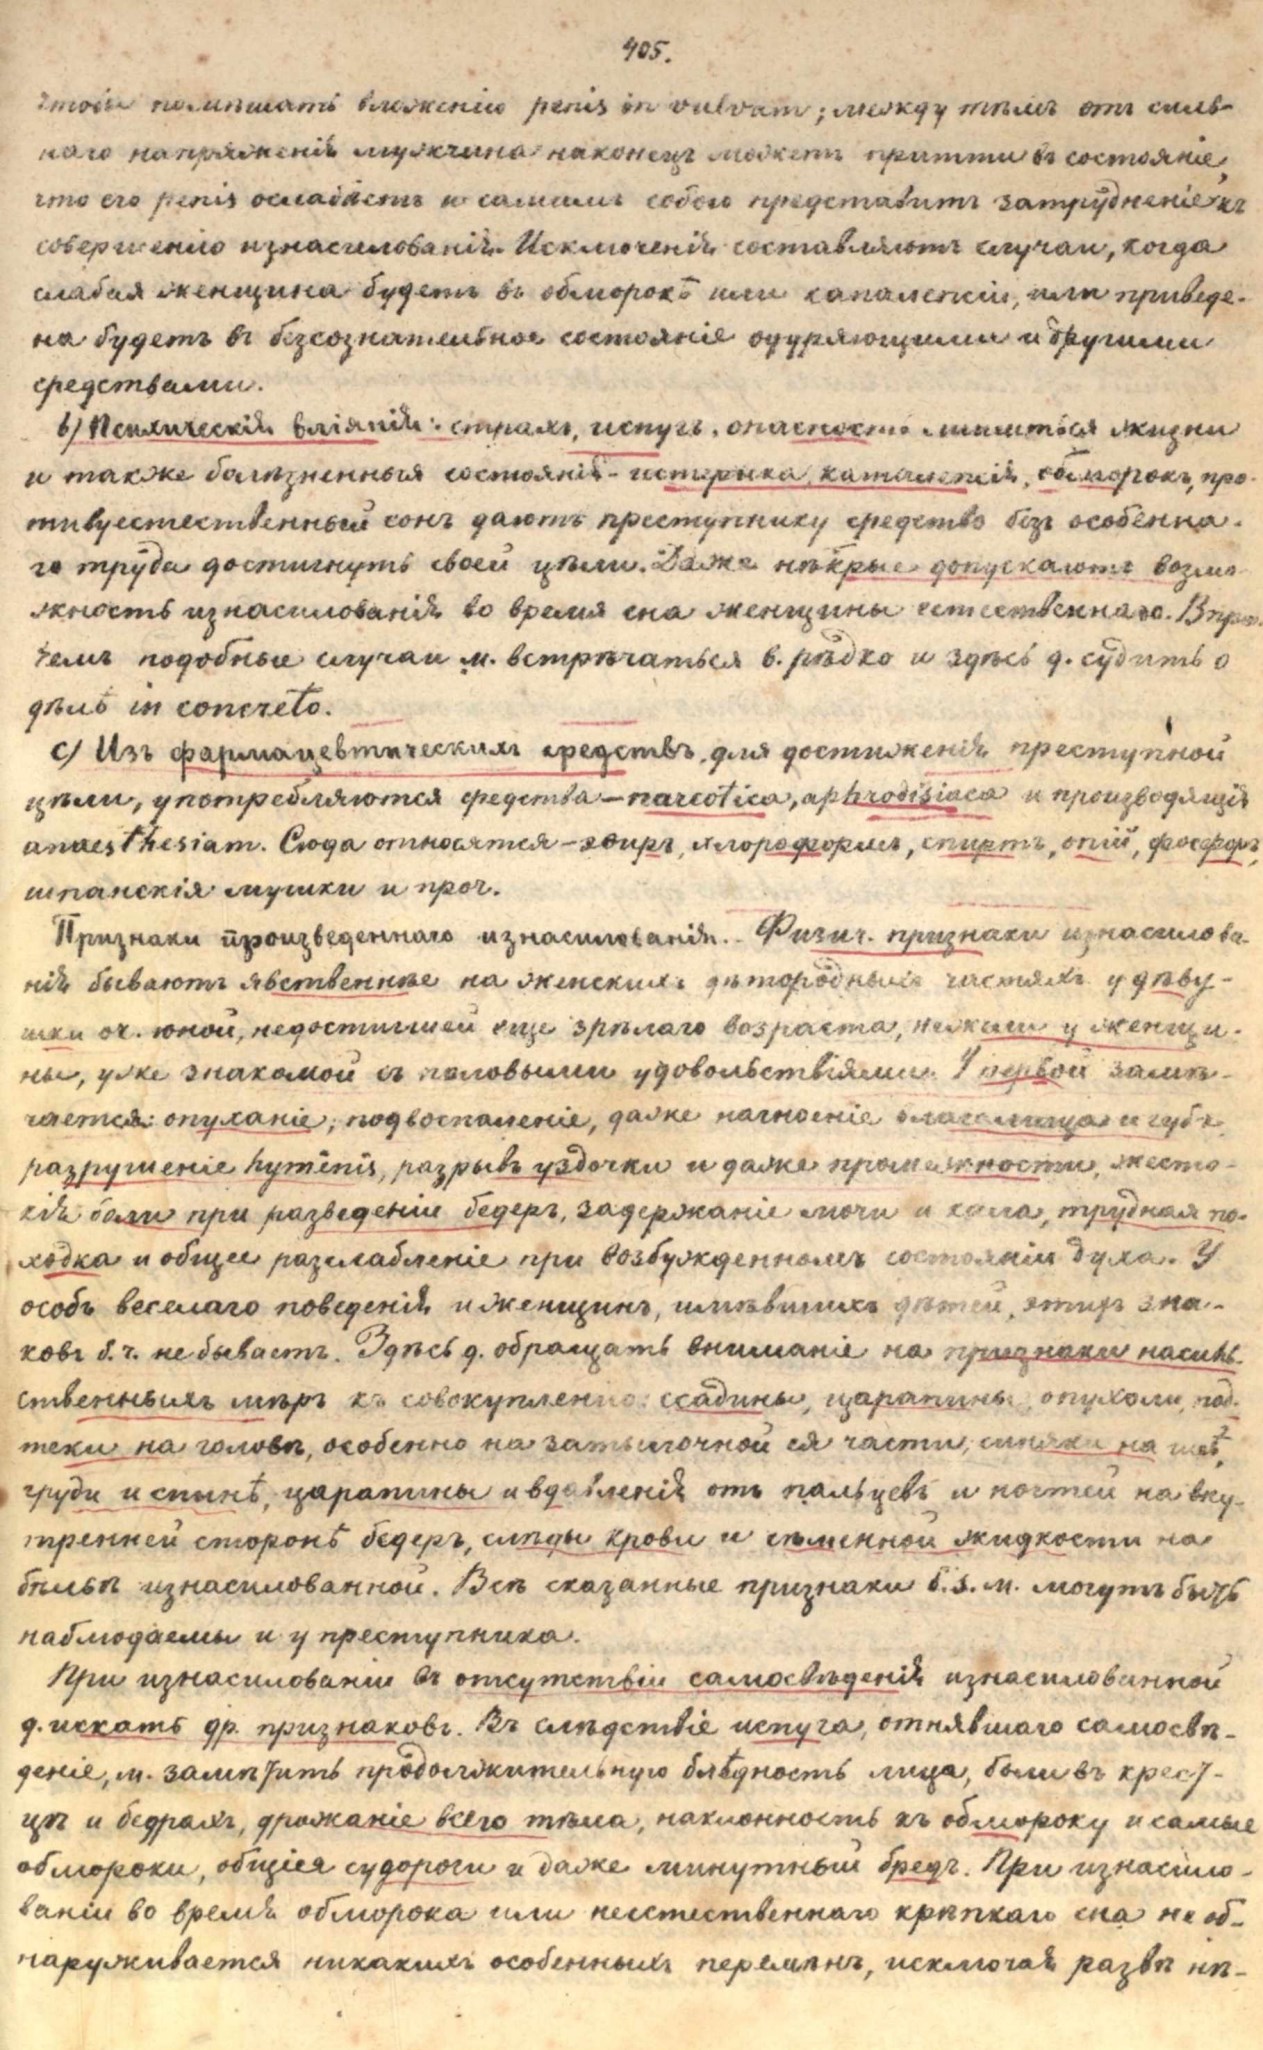 405.
чтобы помѣшать вложенію penis in vulvam; между тѣмъ отъ силь-
наго напряженія мужчина наконецъ можетъ притти въ состояніе,
что его penis ослабѣетъ и самимъ собою представитъ затрудненіе къ
совершенію изнасилованія. Исключенія составляютъ случаи, когда
слабая женщина будетъ въ обморокѣ или каталепсіи, или приведе-
на будетъ въ безсознательное состояніе одуряющими и другими
средствами.
b) Психическія вліянія: страхъ, испугъ, опасность лишиться жизни
и также болѣзненныя состоянія – истерика, каталепсія, обморокъ, про-
тивуестественный сонъ даютъ преступнику средство безъ особенна-
го труда достигнуть своей цѣли. Даже нѣкрые допускаютъ возмо-
жность изнасилованія во время сна женщины естественнаго. Впро-
чемъ подобные случаи м. встрѣчаться в. рѣдко и здѣсь д. судить о
дѣлѣ in concreto.
c) Изъ фармацевтическихъ средствъ, для достиженія преступной
цѣли, употребляются средства – narcotica, aphrodisiaca и производящія
anaesthesiam. Сюда относятся – эѳиръ, хлороформъ, спиртъ, опій, фосфоръ,
шпанскія мушки и проч.
Признаки произведеннаго изнасилованія. Физич. признаки изнасилова-
нія бываютъ явственнѣе на женскихъ дѣтородныхъ частяхъ у дѣву-
шки оч. юной, недостигшей еще зрѣлаго возраста, нежели у женщи-
ны, уже знакомой съ половыми удовольствіями. У первой замѣ-
чается: опуханіе, подвоспаленіе, даже нагноеніе влагалища и губъ,
разрушеніе hymenis, разрывъ уздочки и даже промежности, жесто-
кія боли при разведеніи бедеръ, задержаніе мочи и кала, трудная по-
ходка и общее разслабленіе при возбужденномъ состояніи духа. У
особъ веселаго поведенія и женщинъ, имѣвшихъ дѣтей, этихъ зна-
ковъ б. ч. не бываетъ. Здѣсь д. обращать вниманіе на признаки насиль-
ственныхъ мѣръ къ совокупленію: ссадины, царапины, опухоли, под-
теки на головѣ, особенно на затылочной ея части, синяки на шеѣ,
груди и спинѣ, царапины и вдавленія отъ пальцевъ и ногтей на вну-
тренней сторонѣ бедеръ, слѣды крови и сѣменной жидкости на
бѣльѣ изнасилованной. Всѣ сказанные признаки б. з. м. могутъ быть
наблюдаемы и у преступника.
При изнасилованіи въ отсутствіи самосвѣденія изнасилованной
д. искать др. признаковъ. Въ слѣдствіе испуга, отнявшаго самосвѣ-
деніе, м. замѣтить продолжительную блѣдность лица, боли въ крест-
цѣ и бедрахъ, дрожаніе всего тѣла, наклонность къ обмороку и самые
обмороки, общіея судороги и даже минутный бредъ. При изнасило-
ваніи во время обморока или неестественнаго крѣпкаго сна не об-
наруживается никакихъ особенныхъ перемѣнъ, исключая развѣ нѣ-